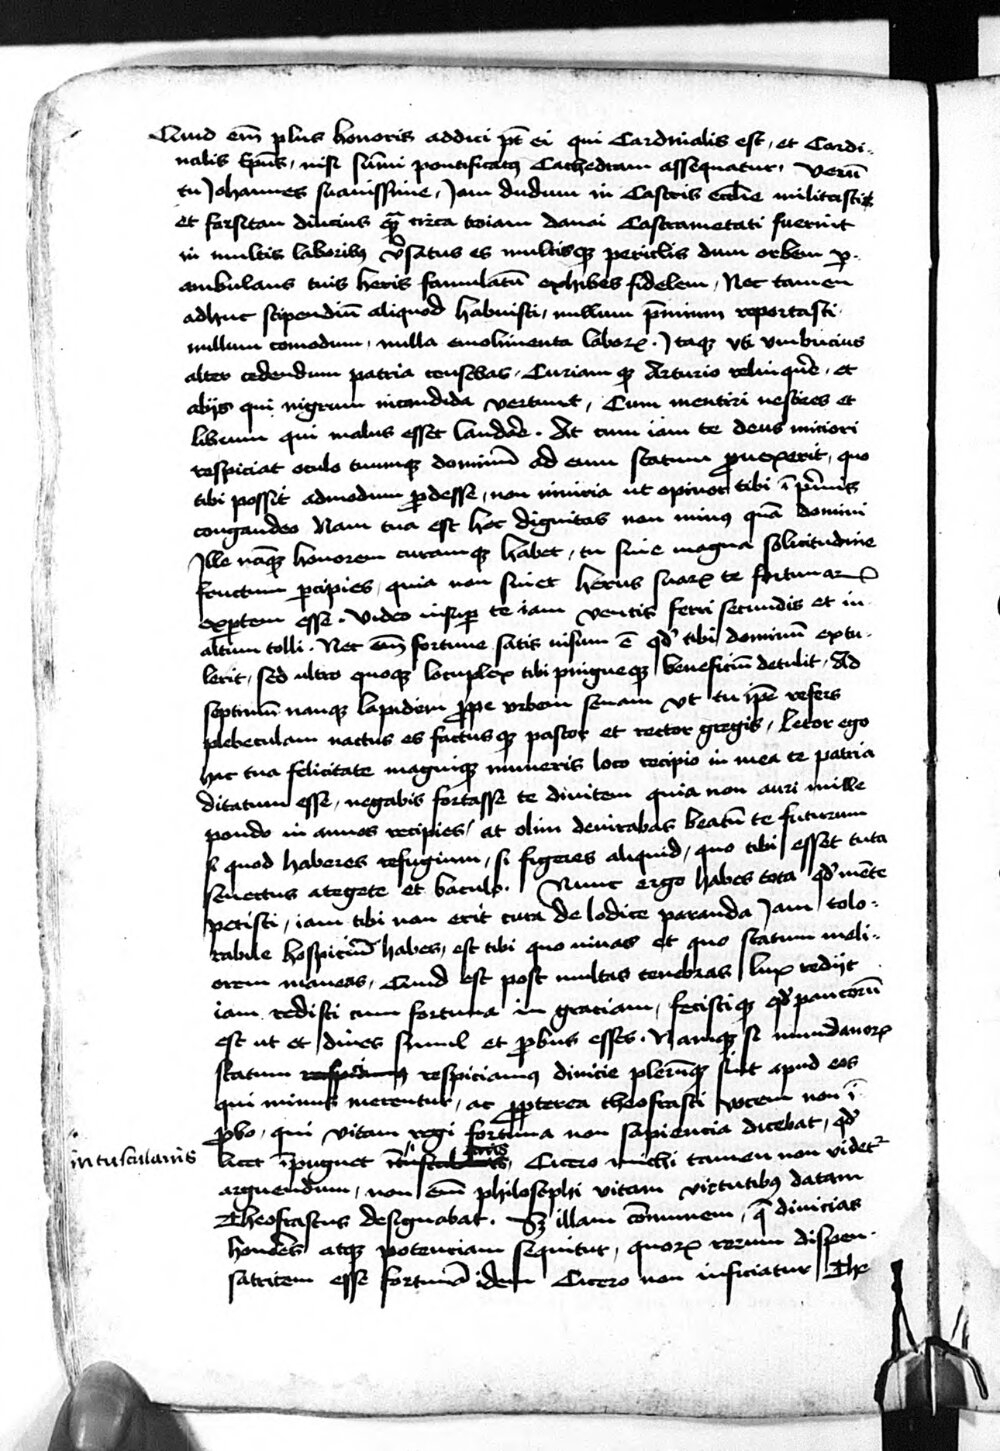 Quid em̄ plus honoris addici pt̄ ei qui Cardinalis est, et Cardi-
nalis Ep̄us, nisi sūmi pontificatꝰ Cathedram assequatur, Verū
tu Johannes suauissime, Jam dudum in Castris eccl̄ie militastis
et forsitan diucius qͣ̄ circa troiam danai Castrametati fuerint
in multis laboribꝰ v̓satus es multisqꝫ periclis dum orbem p̱-
ambulans tuis heris famulatū exhibes fidelem, Nec tamen
adhuc stipendiū aliquod habuisti, nullum p̄mium reportasti
nullum comodum, nulla emolimenta laborꝝ. Itaqꝫ vti vmbricius
alter cedendum patria censebas, Curiam qꝫ Arturio relinqu̓e, et
alijs qui nigrum in candida vertunt, Cum mentiri nescires et
librum qui malus esset laudar̄e. At cum iam te deus mitiori
respiciat oculo tuumqꝫ dominū ad eum statum ꝓuexerit, quo
tibi possit admodum ꝓdesse, non iniuria ut opinor tibi ī p̓mis
congaudeo Nam tua est hec dignitas non minꝰ quā domini
Ille nāqꝫ honorem curamqꝫ habet, tu sine magna solicitudine
fructum p̱cipies, quia non sinet herus suarꝝ te fortunarꝝ
exp̱tem esse. Video insup̱ te iam ventis ferri secundis et in
altum tolli. Nec em̄ fortune satis uisum ē qd̓ tibi dominū extu-
lerit, sed ultro quoqꝫ locuplex tibi pingueqꝫ beneficiū detulit, Ad
septimū nanqꝫ lapidem ꝓpe vrbem senam vt tu ip̄e refers
plebeculam nactus es factusqꝫ pastor et rector gregis, Letor ego
hac tua felicitate magniqꝫ muneris loco recipio in mea te patria
ditatum esse, negabis fortasse te diuitem quia non auri mille
pondo in annos recipies, at olim deuirabas beatū te futurum
si quod haberes refugium, si figeres aliquid, quo tibi esset tuta
senectus a tegete et baculo. Nunc ergo habes tota qd̓ mēte
petisti, iam tibi non erit cura de lodice paranda Jam tolo-
rabile hospiciū habes, est tibi quo uiuas et quo statum meli-
orem maneas, Quid est post multas tenebras lux redijt
iam redisti cum fortuna in gratiam, fecistiqꝫ qd̓ paucorū
est ut et diues simul et ꝓbus esses. Namqꝫ si mundanorꝝ
statum respiciamꝰ diuicie plerūqꝫ sūt apud eos
qui minus merentur, ac ꝓpterea theofrasti vocem non ī
ꝓbo, qui vitam regi fortuna non sapiencia dicebat, qd̓
in tuscularīs licet īpugnet Cicero michi tamen non videtᷣ
arguendum, non em̄ philosophi vitam virtutibꝰ datam
Theofrastus designabat. Sꝫ illam cōmunem, q̄ diuicias
honores atqꝫ potenciam sequitur, quorꝝ rerum dispen-
satricem esse fortunā idem Cicero non inficiatur The